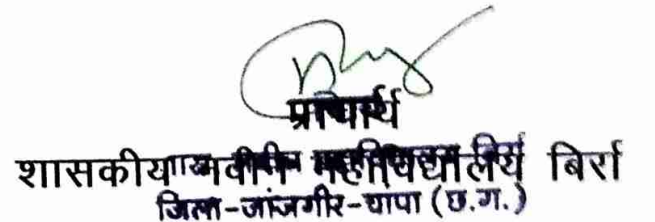 प्राचार्य
शासकीय नवीन महाविद्यालय बिर्रा
जिला-जांजगीर-चापा (छ.ग.)